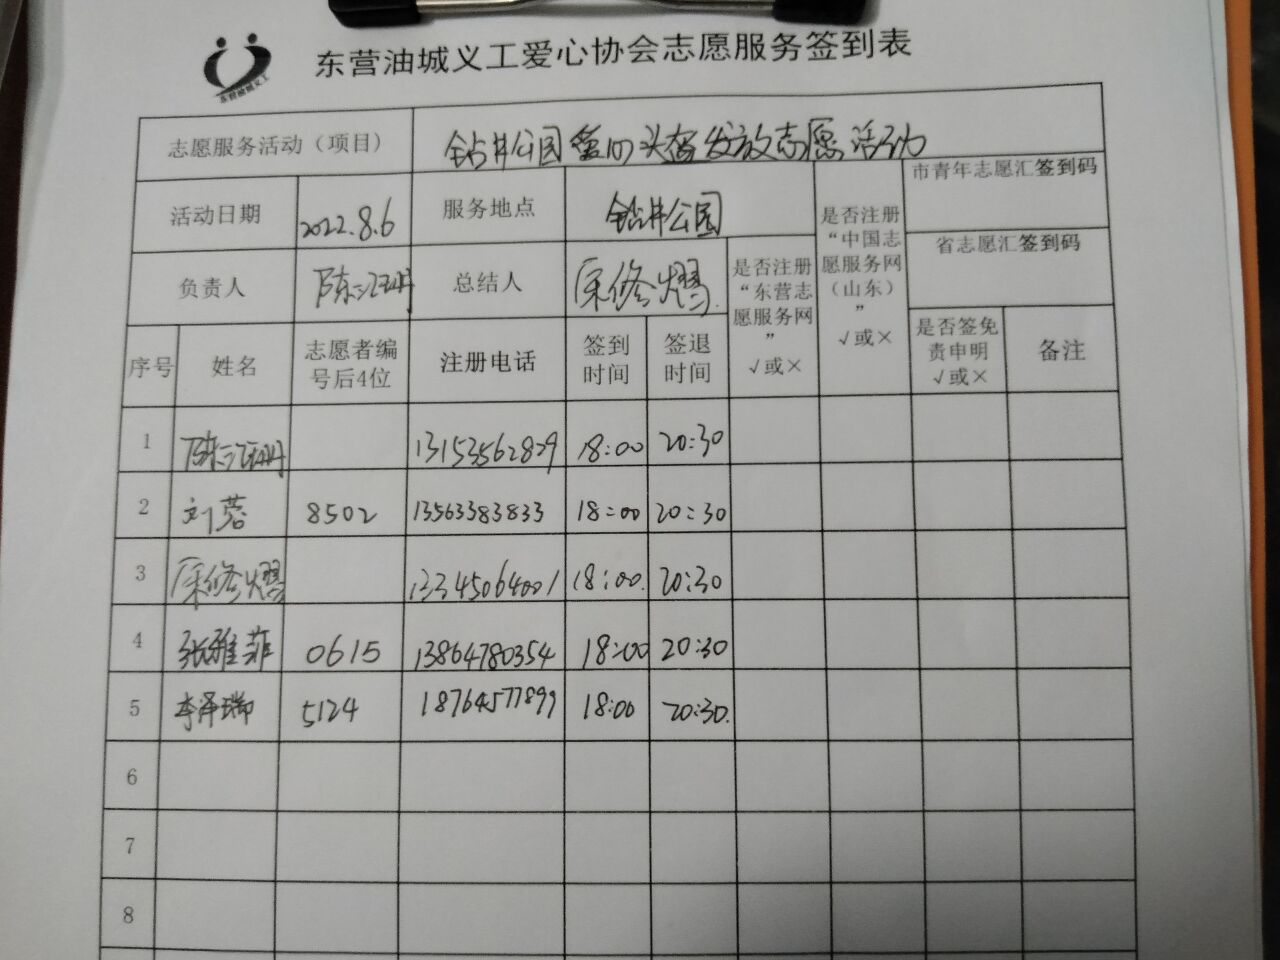 东营油城义工
东营油城义工爱心协会志愿服务签到表
志愿服务活动（项目） 钻井公园 头盔发放志愿活动
活动日期 2022.8.6 服务地点 钻井公园 是否注册“中国志愿服务网（山东）”√或× 市青年志愿汇签到码
省志愿汇签到码
负责人 陈 总结人 修熠 是否注册“东营志愿服务网”√或×
序号 姓名 志愿者编号后4位 注册电话 签到时间 签退时间 是否签免责申明√或× 备注
1 陈 13153562829 18:00 20:30
2 刘蓉 8502 13563383833 18:00 20:30
3 修熠 13345064001 18:00 20:30
4 张雅菲 0615 13864780354 18:00 20:30
5 李泽瑞 5124 18764577899 18:00 20:30.
6
7
8